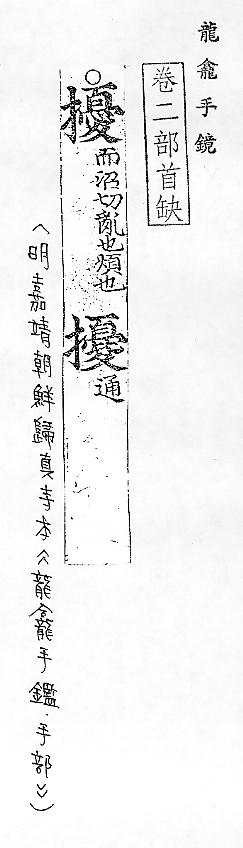 龍龕手鏡
卷二部首缺
○擾而沼切亂也煩也擾通
︿明嘉靖朝鮮歸真寺本︽龍龕手鑑.手部︾﹀